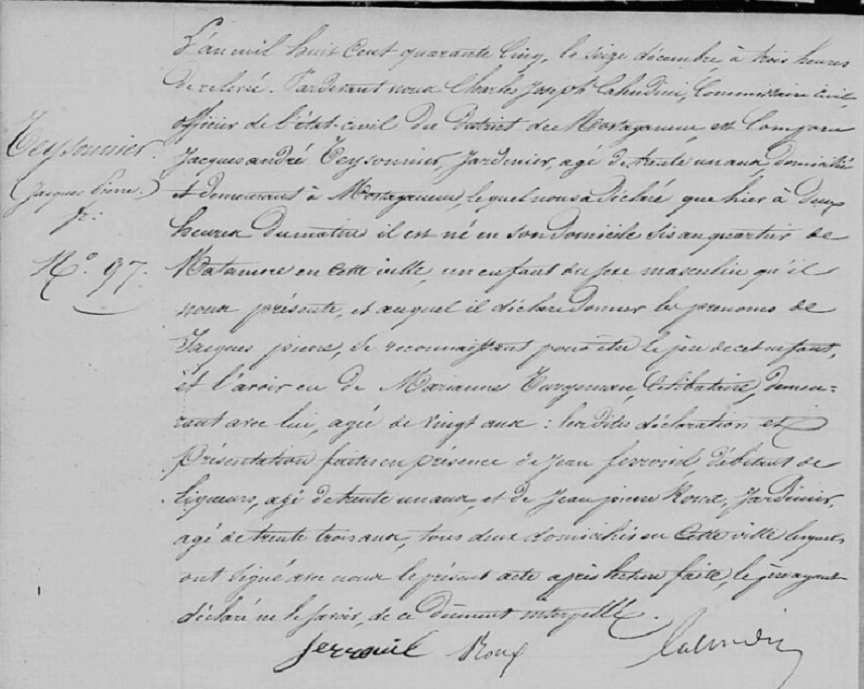 L'an mil huit cent quarante cinq, le seize décembre, à trois heures
de relevé. Pardevant nous Charles Joseph Commissaire civil,
officier de l'état-civil du District de Mostaganem, est comparu
Teyssonnier
Jacques andré Teyssonnier, Jardinier, agé de trente un ans, domicilié
(Jacques Pierre.)
et demeurant à Mostaganem, lequel nous a déclaré que hier à deux
fs:
heures du matin il est né en son domicile sis au quartier de
N.° 97.
Matamore en cette ville, un enfant du sexe masculin qu'il
nous présente, et auquel il déclare donner les prenoms de
Jacques pierre, se reconnaissant pour être le père de cet enfant,
et l'avoir eu de Marianne Celibataire, demeu=
rant avec lui, agée de vingt ans : les dites déclaration et
Présentation faites en présence de Jean débitant de
liqueurs, agé de trente un ans, et de Jean pierre Roux, Jardinier,
agé de trente trois ans, tous deux domiciliés en cette ville lesquels
ont signé avec nous le présent acte après lecture faite, le père ayant
déclaré ne le savoir, de ce Dûment interpellé.
Roux